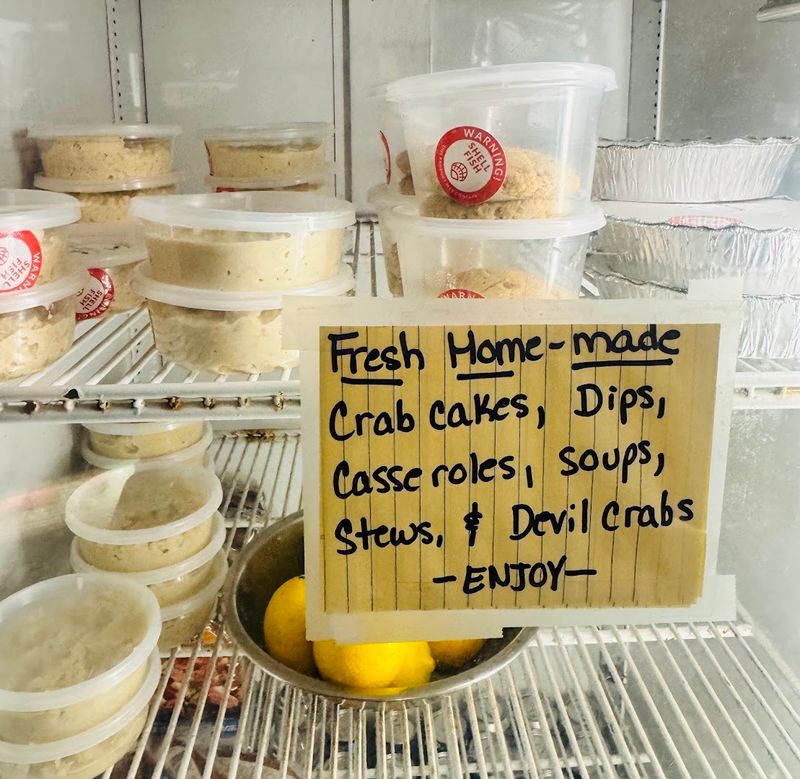 WARNING!
SHELL
FISH
WARN
SHELL
FISH
SHELL
FISH
WARNING
Fresh Home-made
Crab cakes, Dips,
Casseroles, soups,
Stews, & Devil Crabs
-ENJOY-